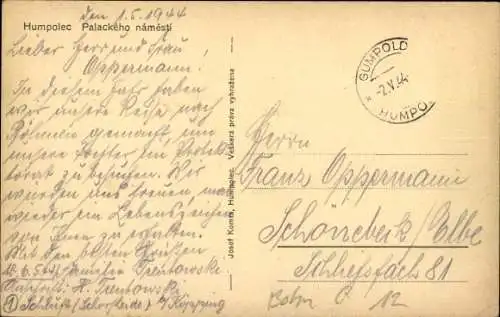 Humpolec Palackého náměstí
den 1.5.1944
Lieber Herr und Frau
Oppermann!
In diesem Jahr haben
wir unsere Reise nach
Böhmen gemacht, um
unsere Tochter im Protek-
torat zu besuchen. Wir
würden uns freuen, mal
wieder ein Lebenszeichen
von Ihnen zu erhalten.
Mit den besten Grüßen
Familie Trentowski
Trentowski
Josef Komrs, Humpolec. Veškerá práva vyhražena
GUMPOLD
2.V.44
HUMPO
Herrn
Franz Oppermann
Schönebeck/Elbe
Schließfach 81
C 12